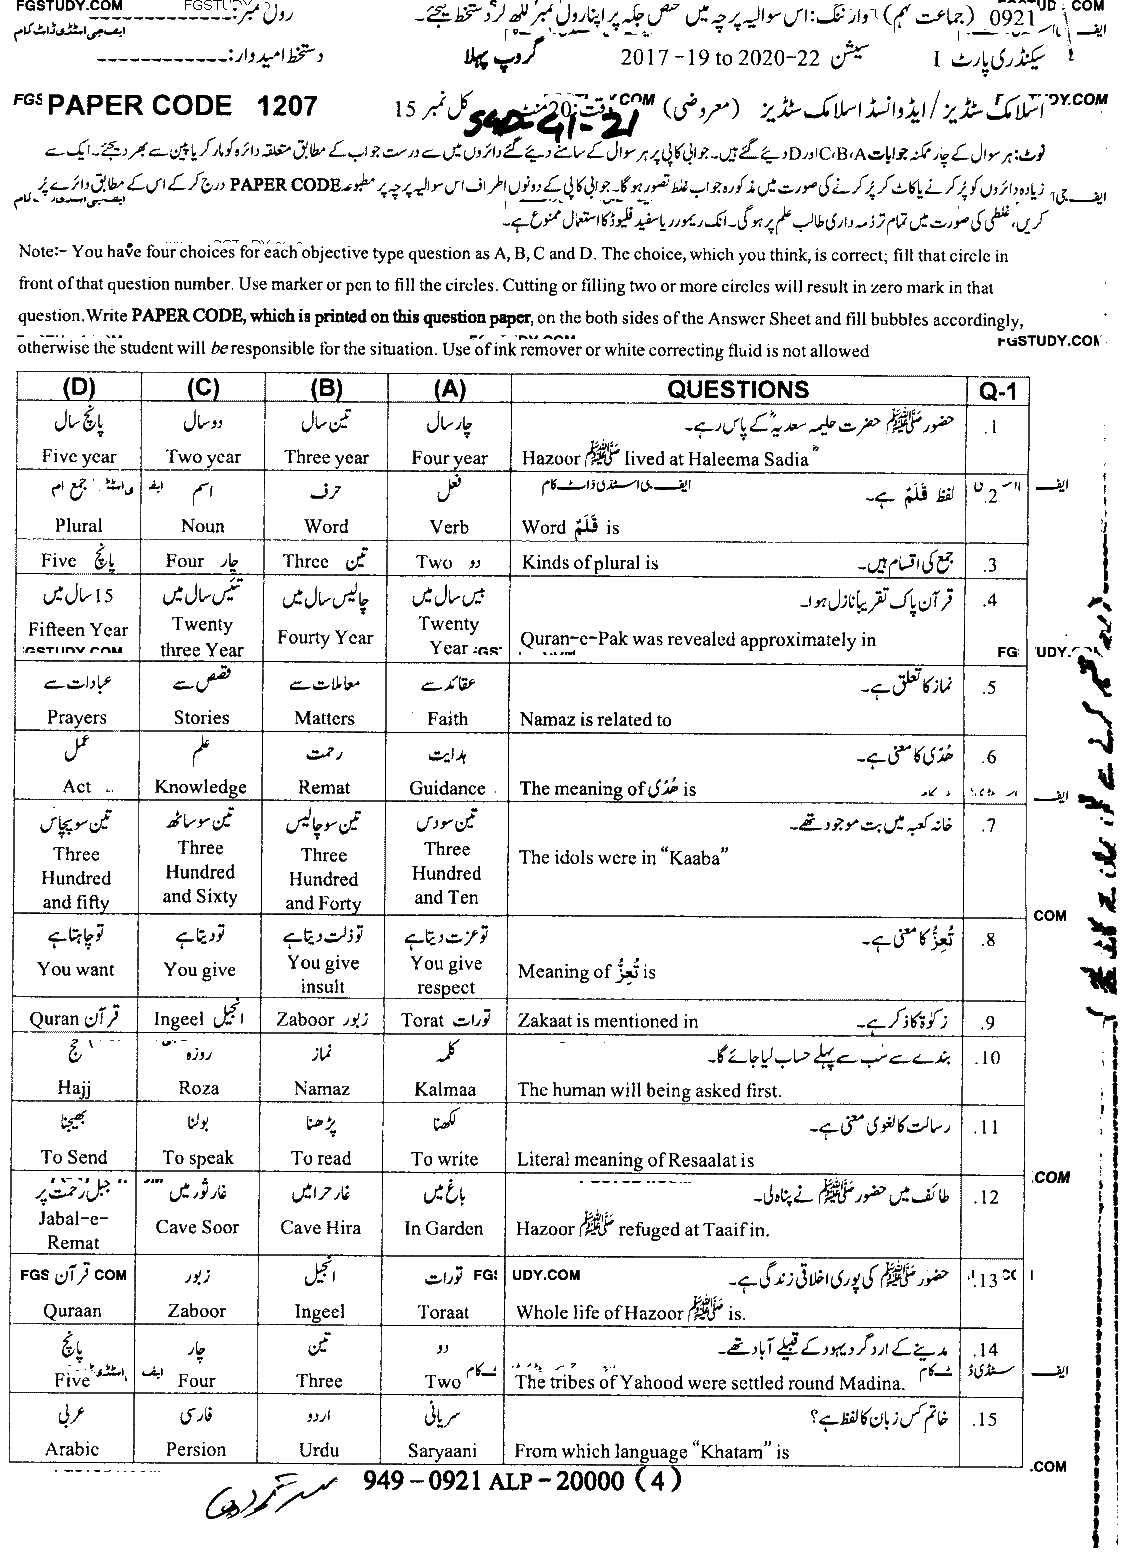 FGSTUDY.COM
رول نمبر:
0921 (جماعت نہم) وارننگ: اس سوالیہ پرچہ میں مختص جگہ پر اپنا رول نمبر لکھ کر دستخط کیجئے۔
سیکنڈری پارٹ I سیشن 2017-19 to 2020-22 گروپ پہلا دستخط امیدوار:
اسلامک سٹڈیز/ایڈوانسڈ اسلامک سٹڈیز (معروضی) وقت:20منٹ کل نمبر 15 PAPER CODE 1207
SGD-G1-21
نوٹ: ہر سوال کے چار ممکنہ جوابات C،B،A اور D دیئے گئے ہیں۔ جوابی کاپی پر ہر سوال کے سامنے دیئے گئے دائروں میں سے درست جواب کے مطابق متعلقہ دائرہ کو مارکر یا پین سے بھر دیجئے۔ ایک سے
زیادہ دائروں کو پُر کرنے یا کاٹ کر پُر کرنے کی صورت میں مذکورہ جواب غلط تصور ہوگا۔ جوابی کاپی کے دونوں اطراف اس سوالیہ پرچہ پر مطبوعہ PAPER CODE درج کر کے اس کے مطابق دائرے پُر
کریں، غلطی کی صورت میں تمام تر ذمہ داری طالب علم پر ہوگی۔ انک ریمور یا سفید فلیوڈ کا استعمال ممنوع ہے۔
Note:- You have four choices for each objective type question as A, B, C and D. The choice, which you think, is correct; fill that circle in
front of that question number. Use marker or pen to fill the circles. Cutting or filling two or more circles will result in zero mark in that
question.Write PAPER CODE, which is printed on this question paper, on the both sides of the Answer Sheet and fill bubbles accordingly,
otherwise the student will be responsible for the situation. Use of ink remover or white correcting fluid is not allowed
FGSTUDY.COM
(D) (C) (B) (A) QUESTIONS Q-1
پانچ سال دو سال تین سال چار سال حضور ﷺ حضرت حلیمہ سعدیہؓ کے پاس رہے۔ .1
Five year Two year Three year Four year Hazoor ﷺ lived at Haleema Sadia
جمع اسم حرف فعل لفظ قَلَمٌ ہے۔ .2
Plural Noun Word Verb Word قَلَمٌ is
Five پانچ Four چار Three تین Two دو Kinds of plural is جمع کی اقسام ہیں۔ .3
15 سال میں تئیس سال میں چالیس سال میں بیس سال میں قرآن پاک تقریباً نازل ہوا۔ .4
Fifteen Year Twenty three Year Fourty Year Twenty Year Quran-e-Pak was revealed approximately in
عبادات سے قصص سے معاملات سے عقائد سے نماز کا تعلق ہے۔ .5
Prayers Stories Matters Faith Namaz is related to
عمل علم رحمت ہدایت ھُدًی کا معنی ہے۔ .6
Act Knowledge Remat Guidance The meaning of ھُدًی is
تین سو پچاس تین سو ساٹھ تین سو چالیس تین سو دس خانہ کعبہ میں بت موجود تھے۔ .7
Three Hundred and fifty Three Hundred and Sixty Three Hundred and Forty Three Hundred and Ten The idols were in “Kaaba”
تو چاہتا ہے تو دیتا ہے تو ذلت دیتا ہے تو عزت دیتا ہے تُعِزُّ کا معنی ہے۔ .8
You want You give You give insult You give respect Meaning of تُعِزُّ is
Quran قرآن Ingeel انجیل Zaboor زبور Torat تورات Zakaat is mentioned in زکوٰۃ کا ذکر ہے۔ .9
حج روزہ نماز کلمہ بندے سے سب سے پہلے حساب لیا جائے گا۔ .10
Hajj Roza Namaz Kalmaa The human will being asked first.
بھیجنا بولنا پڑھنا لکھنا رسالت کا لغوی معنی ہے۔ .11
To Send To speak To read To write Literal meaning of Resaalat is
جبل رحمت پر غار ثور میں غار حرا میں باغ میں طائف میں حضور ﷺ نے پناہ لی۔ .12
Jabal-e-Remat Cave Soor Cave Hira In Garden Hazoor ﷺ refuged at Taaif in.
قرآن زبور انجیل تورات حضور ﷺ کی پوری اخلاقی زندگی ہے۔ .13
Quraan Zaboor Ingeel Toraat Whole life of Hazoor ﷺ is.
پانچ چار تین دو مدینے کے ارد گرد یہود کے قبیلے آباد تھے۔ .14
Five Four Three Two The tribes of Yahood were settled round Madina.
عربی فارسی اردو سریانی خاتم کس زبان کا لفظ ہے؟ .15
Arabic Persion Urdu Saryaani From which language “Khatam” is
949-0921 ALP-20000 (4)